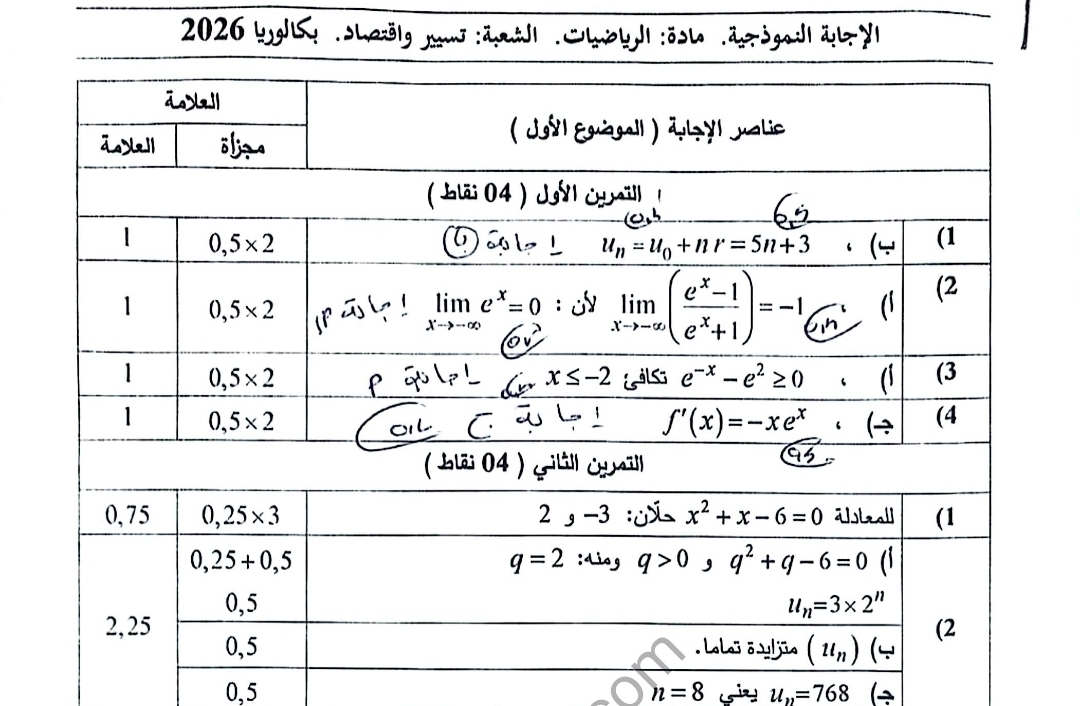 الإجابة النموذجية. مادة: الرياضيات. الشعبة: تسيير واقتصاد. بكالوريا 2026
العلامة
عناصر الإجابة ( الموضوع الأول )
مجزأة
العلامة
التمرين الأول ( 04 نقاط )
1) ب) ، uₙ = u₀ + n r = 5n + 3 إجابة (ب) 0,5×2 1
2) أ) ، lim x→−∞ ((eˣ−1)/(eˣ+1)) = −1 لأن : lim x→−∞ eˣ = 0 إجابة أ 0,5×2 1
3) أ) ، e⁻ˣ − e² ≥ 0 تكافئ x ≤ −2 إجابة أ 0,5×2 1
4) جـ) ، f′(x) = −xeˣ إجابة ج 0,5×2 1
التمرين الثاني ( 04 نقاط )
1) للمعادلة x² + x − 6 = 0 حلّان: −3 و 2 0,25×3 0,75
أ) q² + q − 6 = 0 و q > 0 ومنه: q = 2 0,25+0,5
uₙ = 3 × 2ⁿ 0,5
2) ب) (uₙ) متزايدة تماما. 0,5 2,25
جـ) uₙ = 768 يعني n = 8 0,5
com